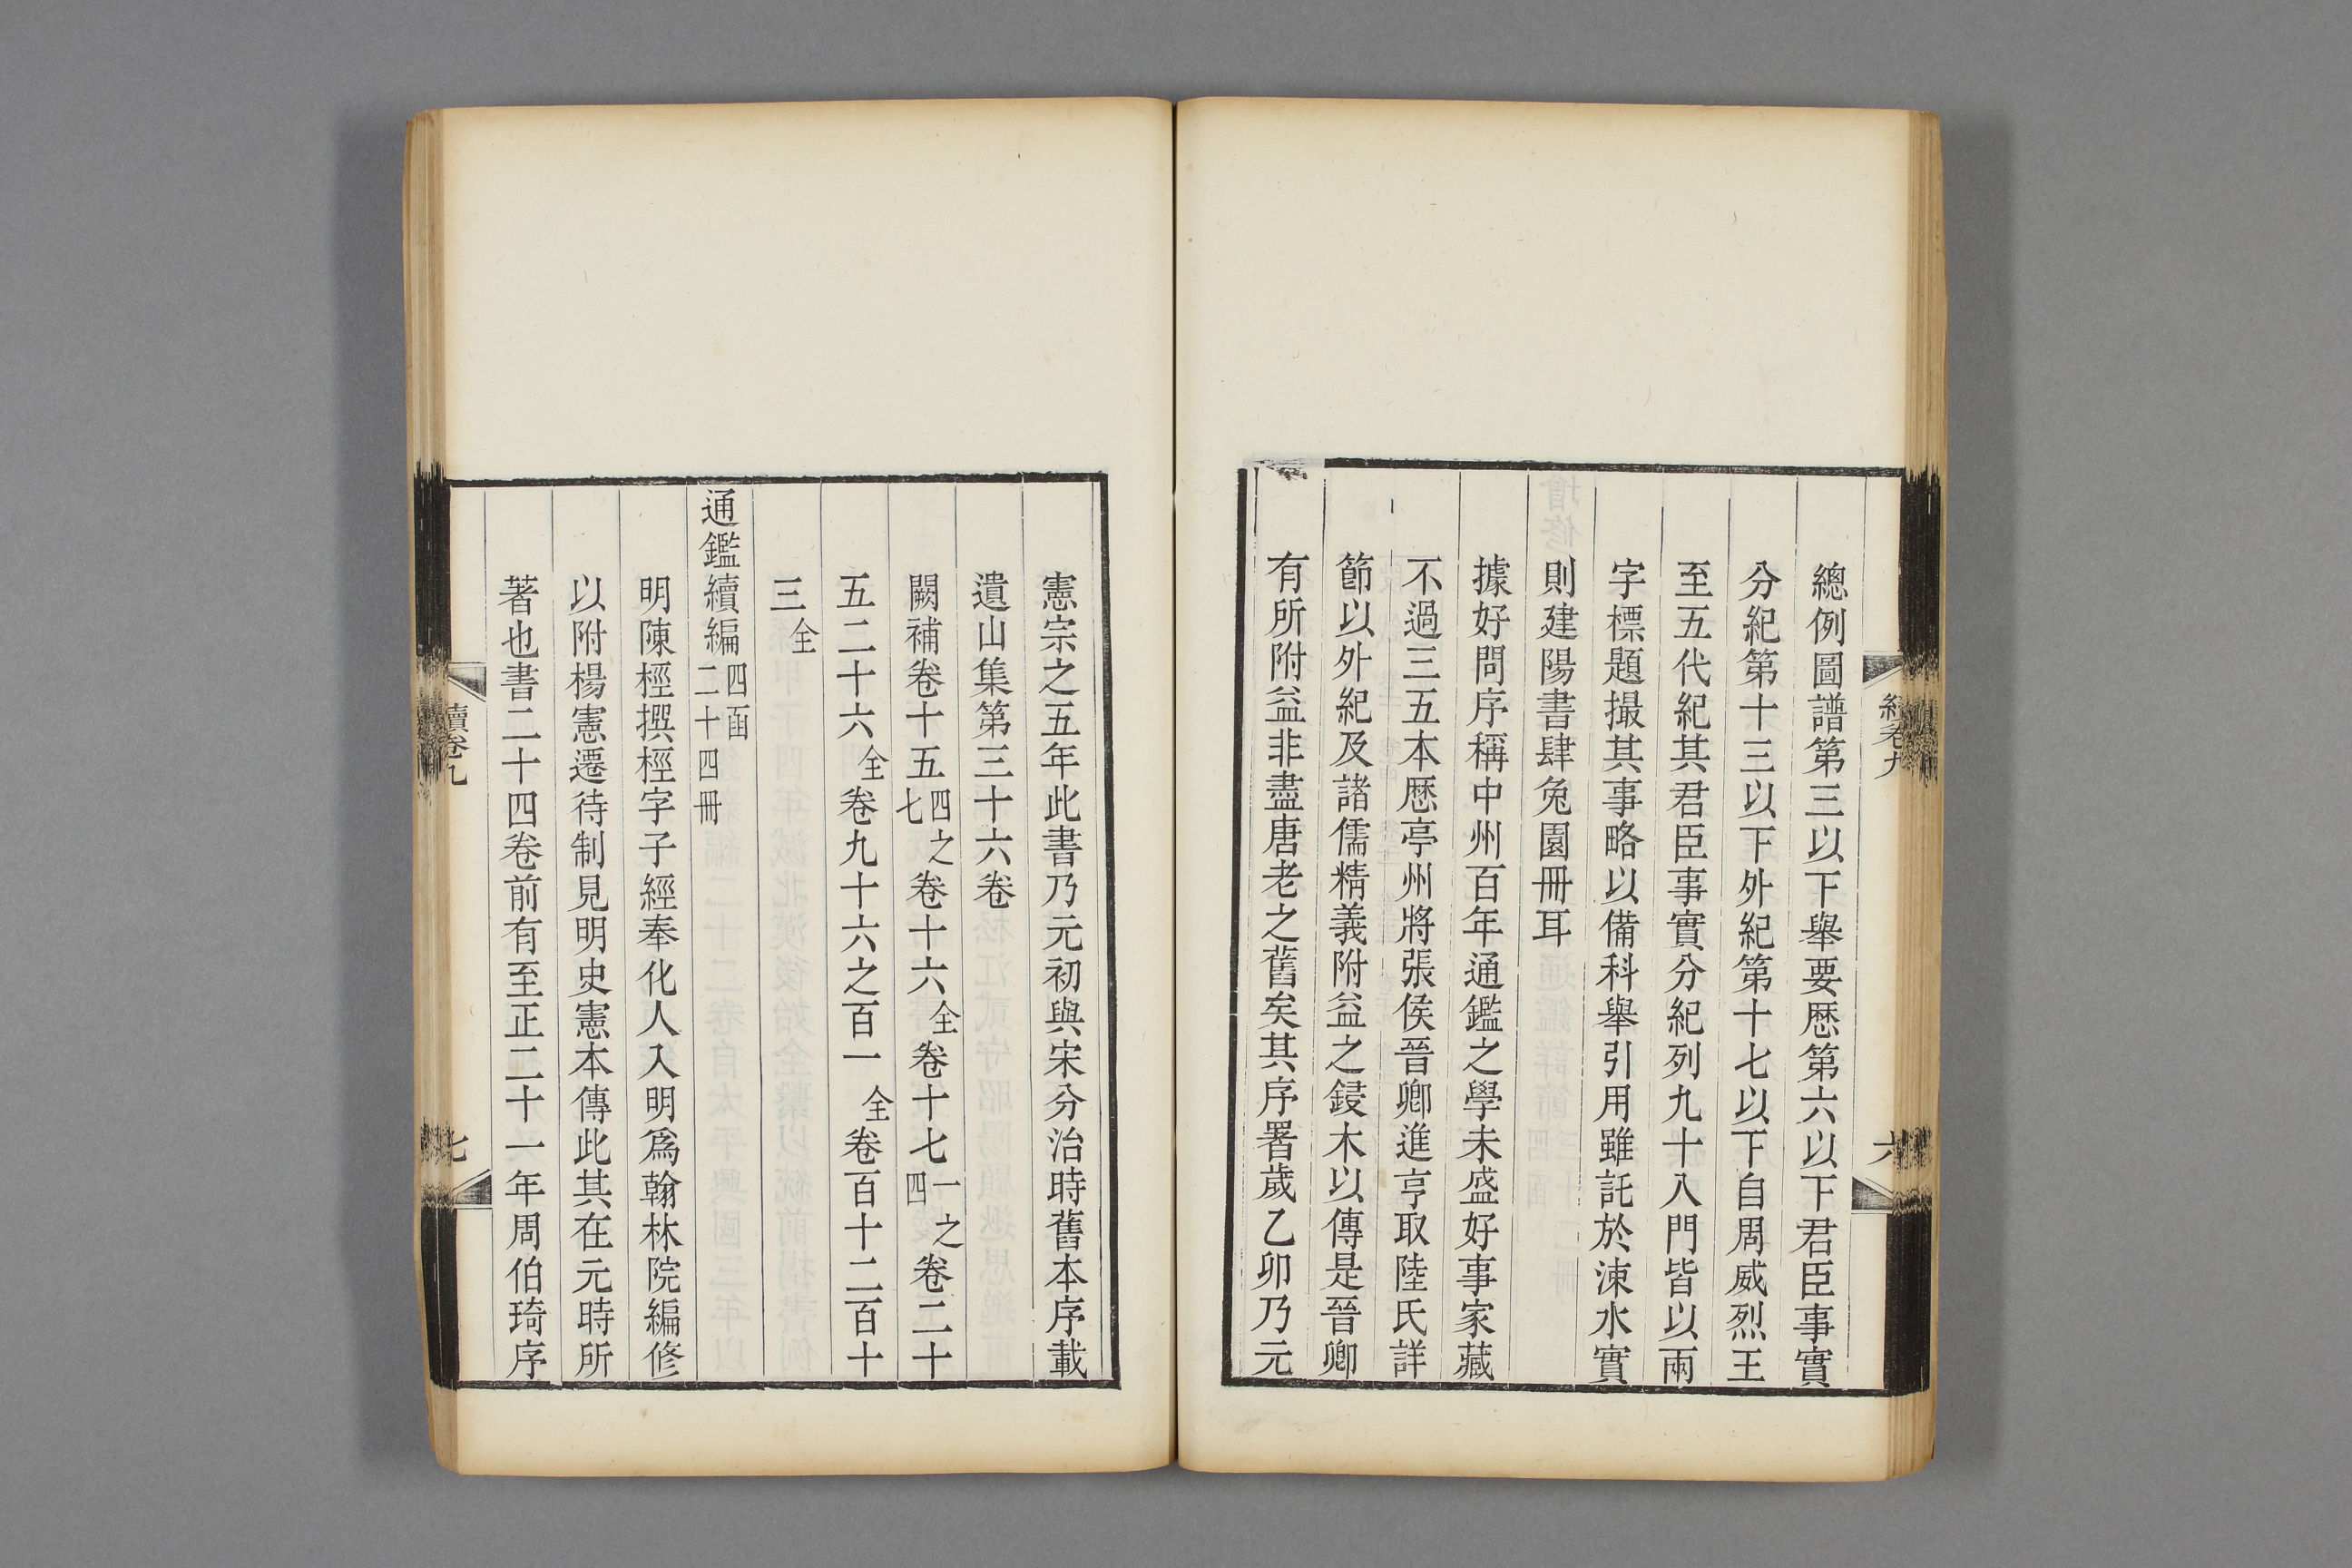 總例圖譜第三以下舉要歷第六以下君臣事實
分紀第十三以下外紀第十七以下自周威烈王
至五代紀其君臣事實分紀列九十八門皆以兩
字標題撮其事略以備科舉引用雖託於涑水實
則建陽書肆兔園冊耳
據好問序稱中州百年通鑑之學未盛好事家藏
不過三五本歷亭州將張侯晉卿進亨取陸氏詳
節以外紀及諸儒精義附益之鋟木以傳是晉卿
有所附益非盡唐老之舊矣其序署歲乙卯乃元
憲宗之五年此書乃元初與宋分治時舊本序載
遺山集第三十六卷
闕補卷十五四之七卷十六全卷十七一之四卷二十
五二十六全卷九十六之百一全卷百十二百十
三全
通鑑續編四函二十四冊
明陳桱撰桱字子經奉化人入明爲翰林院編修
以附楊憲遷待制見明史憲本傳此其在元時所
著也書二十四卷前有至正二十一年周伯琦序
續卷九
七